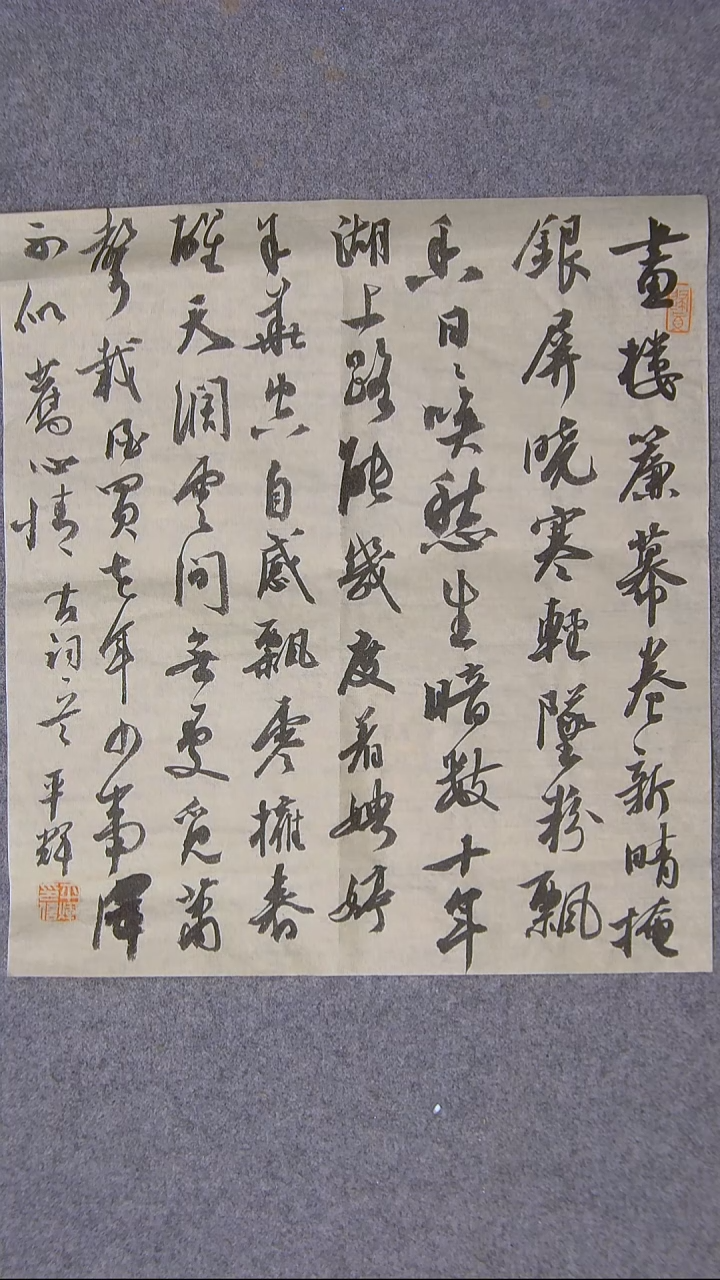 畫樓簾幕卷新晴掩
銀屏曉寒輕墜粉飄
香日々喚愁生暗數十年
湖上路能幾度着娉婷
年華空自感飄零擁春
醒天闊雲間無處覓蕭
聲載酒買花年少事渾
不似舊心情 古詞一首 平輝